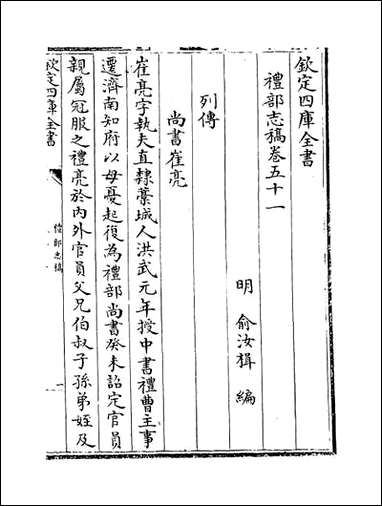 欽定四庫全書
禮部志稿卷五十一
明 俞汝楫 編
列傳
尚書崔亮
崔亮字執夫直隸藁城人洪武元年授中書禮曹主事
遷濟南知府以母憂起復為禮部尚書癸未詔定官員
親屬冠服之禮亮於內外官員父兄伯叔子孫弟姪及
欽定四庫全書
禮部志稿
一